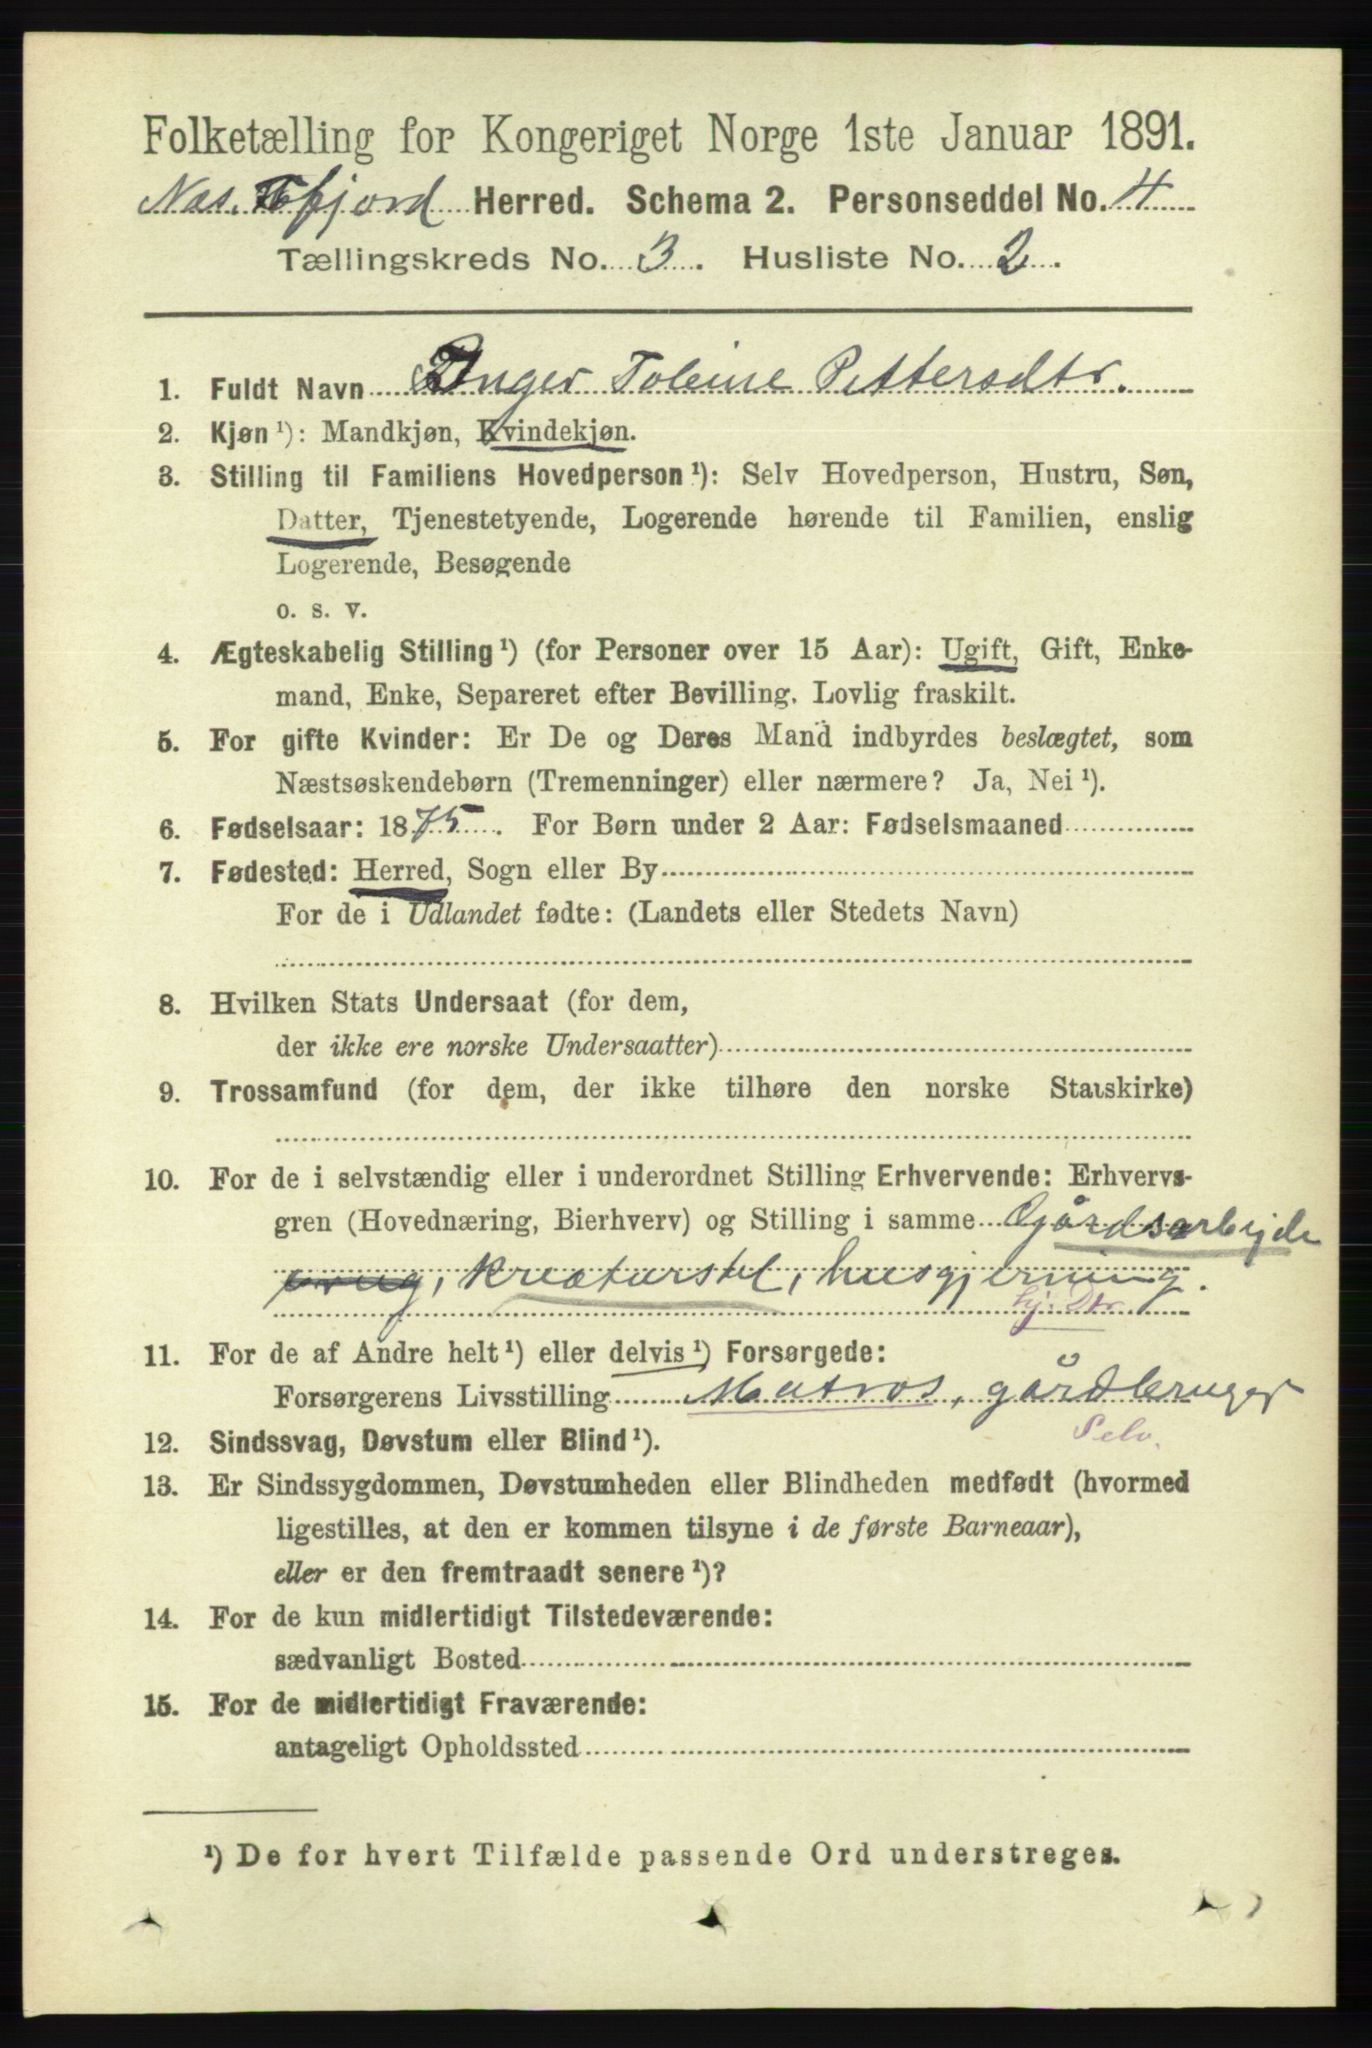 Folketælling for Kongeriget Norge 1ste Januar 1891.
Nas. Tfjord Herred. Schema 2. Personseddel No. 4
Tællingskreds No. 3. Husliste No. 2.
1. Fuldt Navn Inger Toleine Pettersdtr.
2. Kjøn ¹): Mandkjøn, Kvindekjøn.
3. Stilling til Familiens Hovedperson ¹): Selv Hovedperson, Hustru, Søn,
Datter, Tjenestetyende, Logerende hørende til Familien, enslig
Logerende, Besøgende
o. s. v.
4. Ægteskabelig Stilling ¹) (for Personer over 15 Aar): Ugift, Gift, Enke-
mand, Enke, Separeret efter Bevilling. Lovlig fraskilt.
5. For gifte Kvinder: Er De og Deres Mand indbyrdes beslægtet, som
Næstsøskendebørn (Tremenninger) eller nærmere? Ja, Nei ¹).
6. Fødselsaar: 1875. For Børn under 2 Aar: Fødselsmaaned
7. Fødested: Herred, Sogn eller By
For de i Udlandet fødte: (Landets eller Stedets Navn)
8. Hvilken Stats Undersaat (for dem,
der ikke ere norske Undersaatter)
9. Trossamfund (for dem, der ikke tilhøre den norske Statskirke)
10. For de i selvstændig eller i underordnet Stilling Erhvervende: Erhvervs-
gren (Hovednæring, Bierhverv) og Stilling i samme Gårdsarbejde
, kreaturstel, husgjerning.
hj. Dtr
11. For de af Andre helt ¹) eller delvis ¹) Forsørgede:
Forsørgerens Livsstilling Matros, gårdbruger
Selv.
12. Sindssvag, Døvstum eller Blind ¹).
13. Er Sindssygdommen, Døvstumheden eller Blindheden medfødt (hvormed
ligestilles, at den er kommen tilsyne i de første Barneaar),
eller er den fremtraadt senere ¹)?
14. For de kun midlertidigt Tilstedeværende:
sædvanligt Bosted
15. For de midlertidigt Fraværende:
antageligt Opholdssted
¹) De for hvert Tilfælde passende Ord understreges.